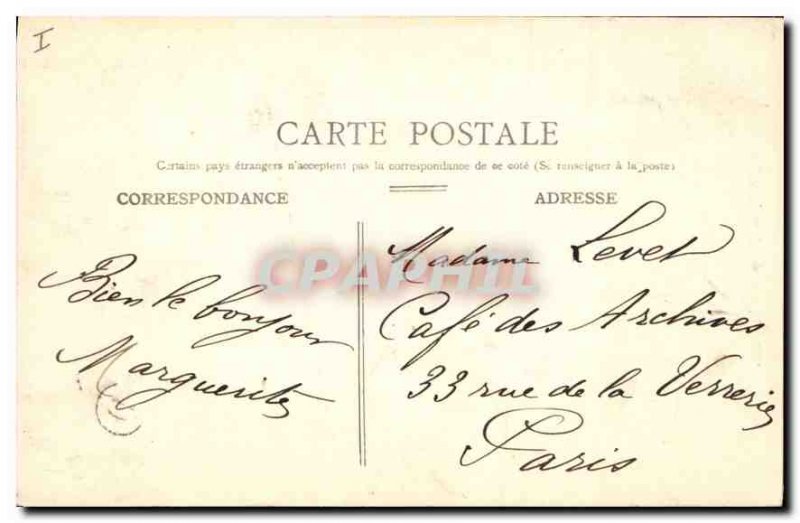 I
CARTE POSTALE
Certains pays étrangers n'acceptent pas la correspondance de ce coté (Se renseigner à la poste)
CORRESPONDANCE
ADRESSE
Bien le bonjour
Marguerite
Madame Levet
Café des Archives
33 rue de la Verrerie
Paris
CPAPHIL